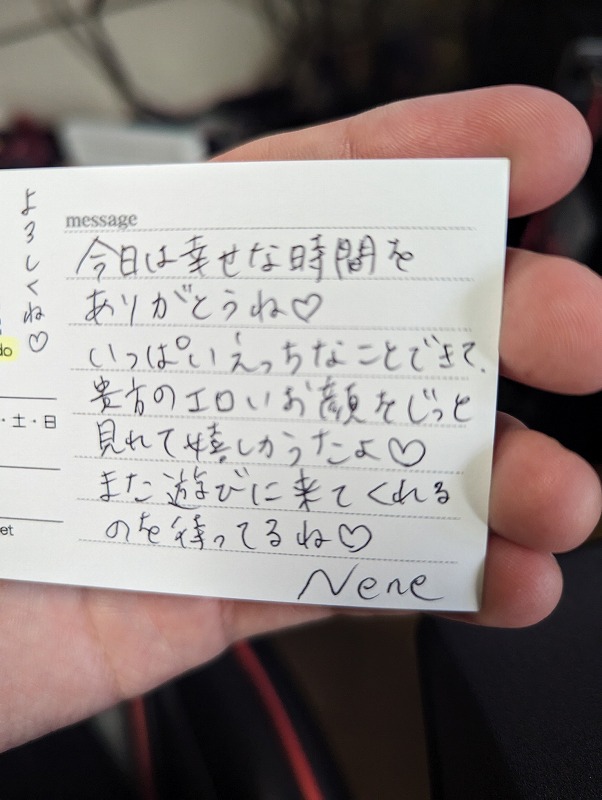 よろしくね♡
do
・土・日
et
message
今日は幸せな時間を
ありがとうね♡
いっぱいえっちなことできて、
貴方のエロいお顔をじっと
見れて嬉しかったよ♡
また遊びに来てくれる
のを待ってるね♡
Nene